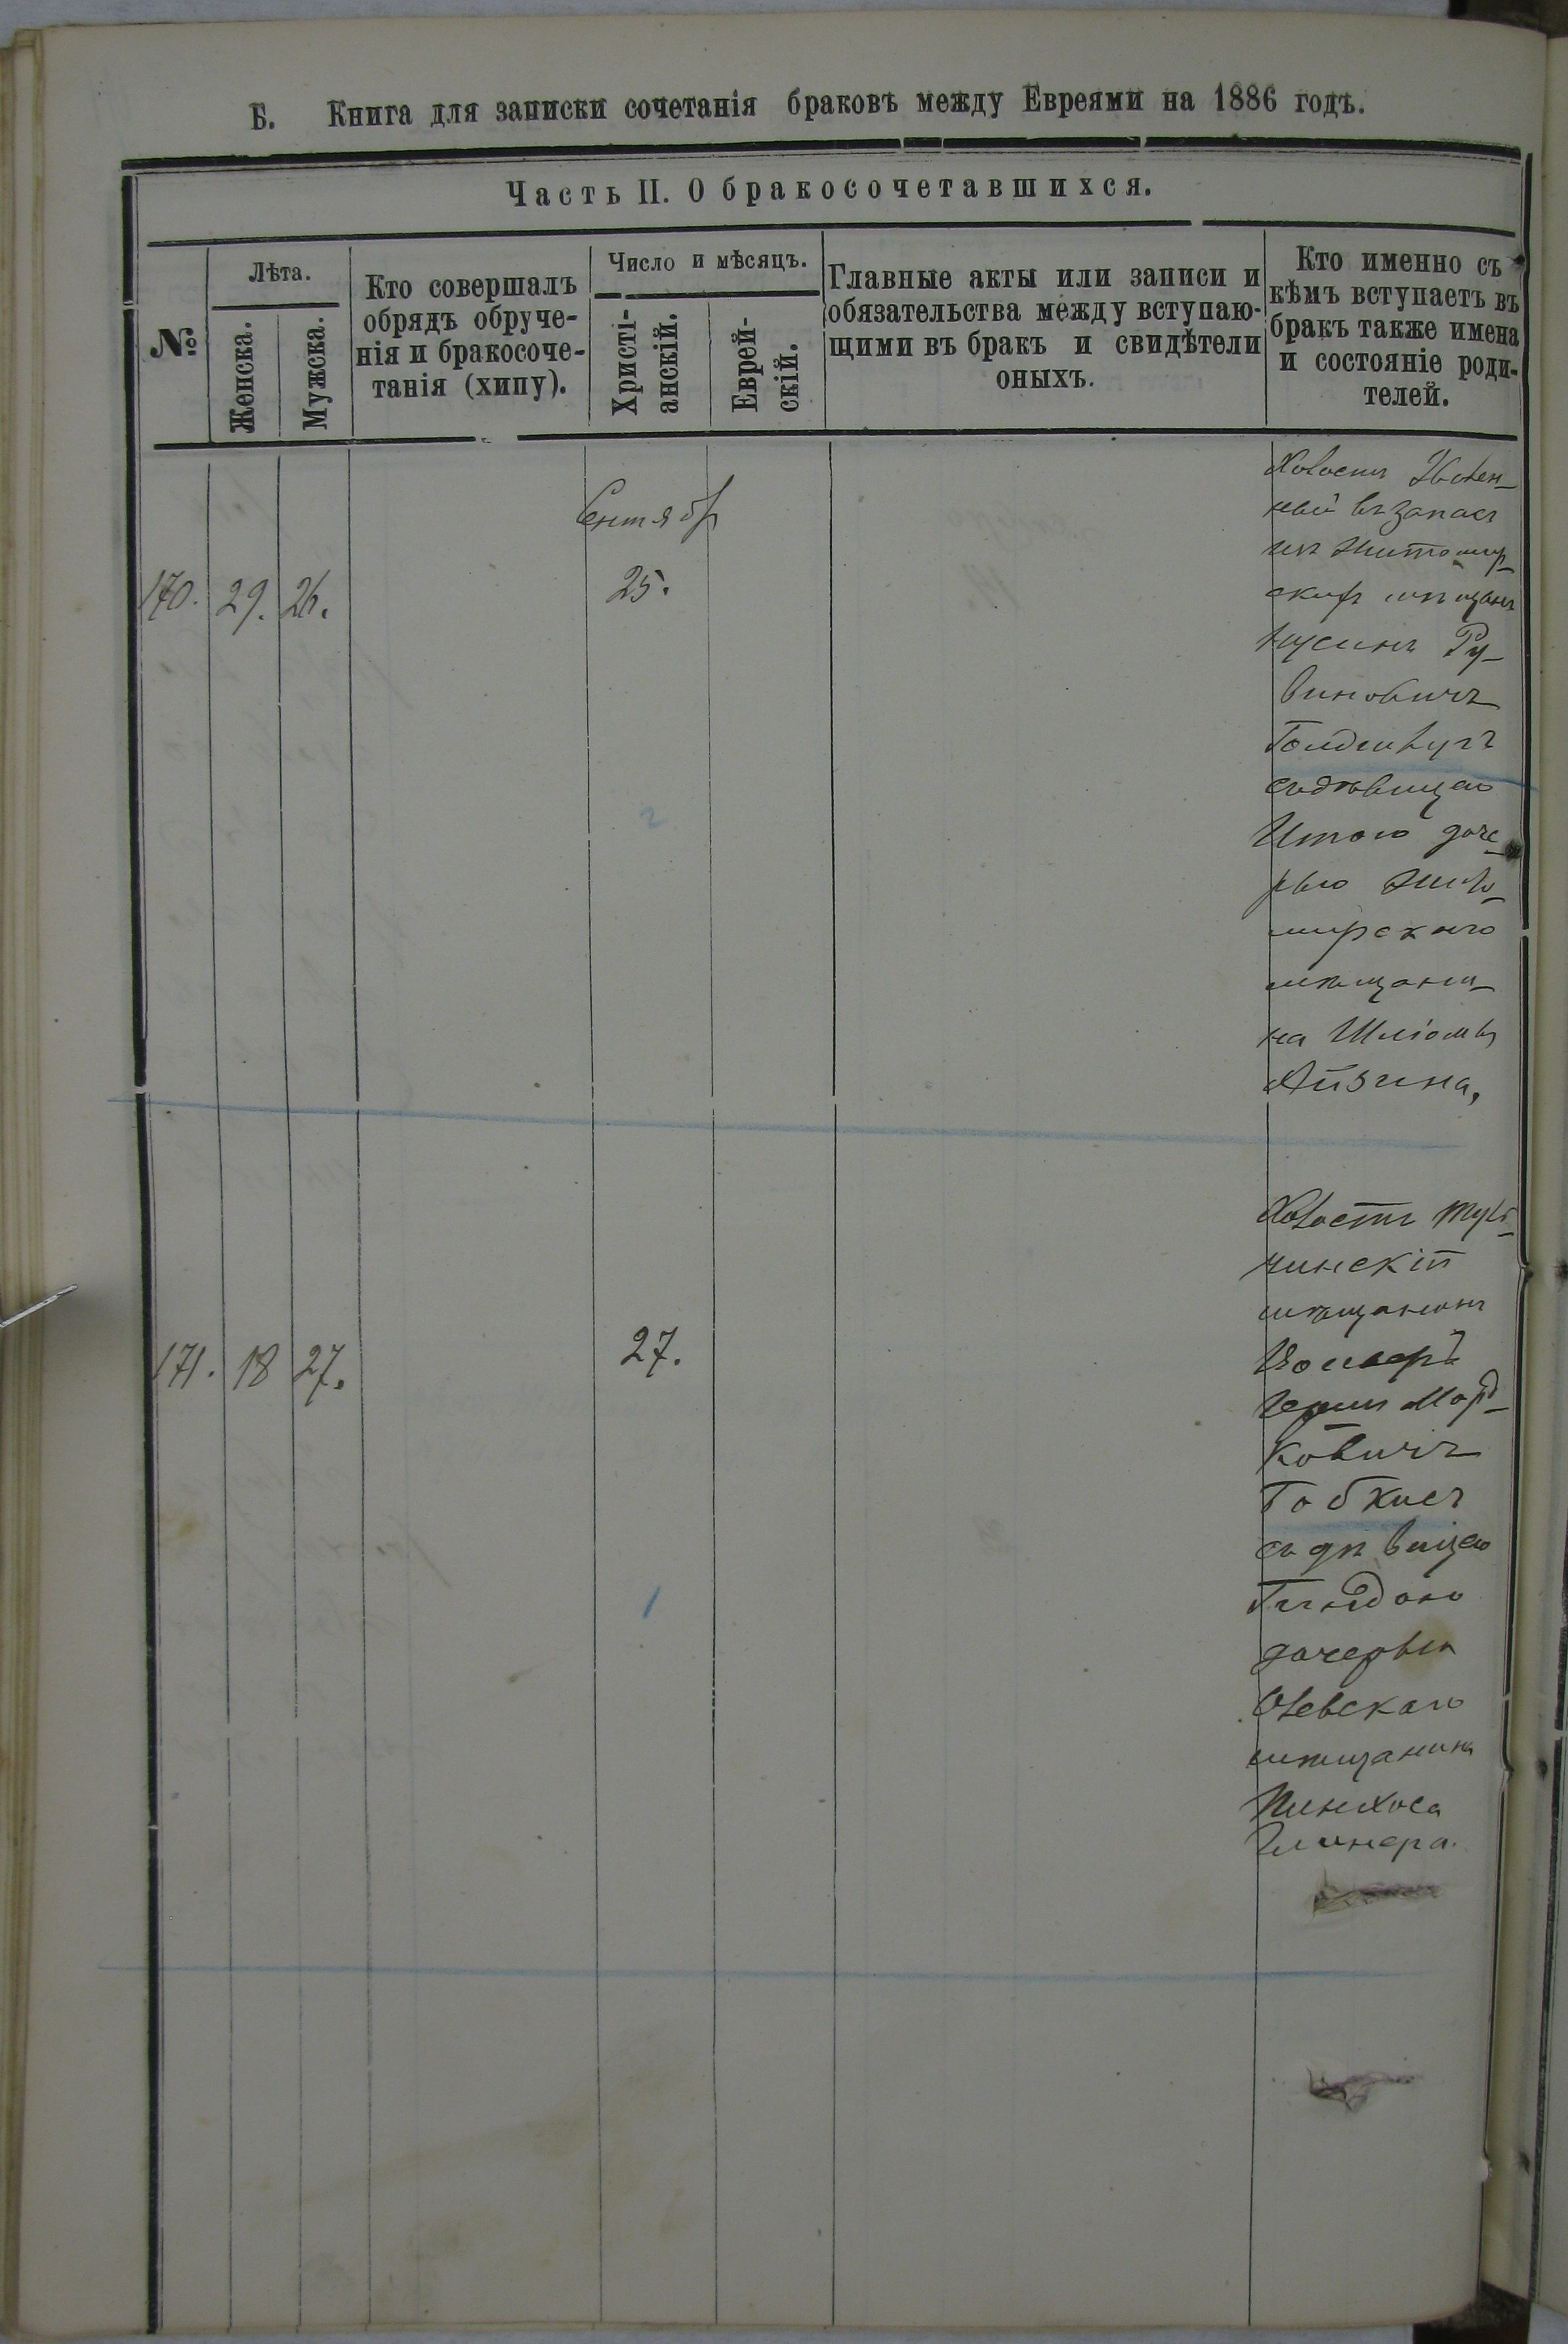 Б. Книга для записки сочетанія браковъ между Евреями на 1886 годъ.
Часть II. О бракосочетавшихся.
№
Лѣта.
Женска.
Мужска.
Кто совершалъ
обрядъ обруче-
нія и бракосоче-
танія (хипу).
Число и мѣсяцъ.
Христі-
анскій.
Еврей-
скій.
Главные акты или записи и
обязательства между вступаю-
щими въ бракъ и свидѣтели
оныхъ.
Кто именно съ
кѣмъ вступаетъ въ
бракъ также имена
и состояніе роди-
телей.
Сентябр
170. 29. 26. 25.
Холостъ Уволен-
ный въ запасъ
изъ Житомир-
скихъ мѣщанъ
Нусинъ Ру-
виновичъ
съ дѣвицею
Итою доче-
рью Жито-
мирскаго
мѣщани-
на Шліомы
Айзина,
171. 18 27. 27.
Холостъ Туль-
чинскій
мѣщанинъ
Мор-
ковичъ
Бобкисъ
съ дѣвицею
дочерью
Олевскаго
мѣщанина
Пинхоса
Глинера.
2
1